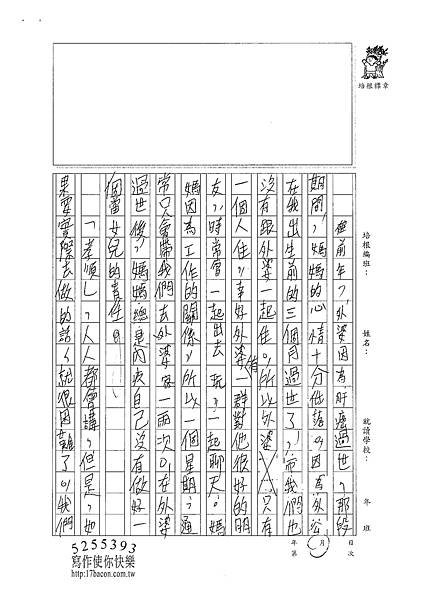 培根標章
培根編班： 姓名： 就讀學校： 年 班
年 月 日
第 次
前年，外婆因為肝癌過世，那段
期間，媽媽的心情十分低落。因為外公
在我出生前的三個月過世了，而我們也
沒有跟外婆一起住。所以外婆只有
一個人住，幸好外婆有一群對他很好的朋
友，時常會一起出去玩，一起聊天。媽
媽因為工作的關係，所以一個星期，通
常只會帶我們去外婆家一兩次。在外婆
過世後，媽媽總是內疚自己沒有做好一
個當女兒的責任。
「孝順」人人都會講，但是，如
果要實際去做的話，就很困難了。我們
5255393
寫作使你快樂
http://17bacon.com.tw